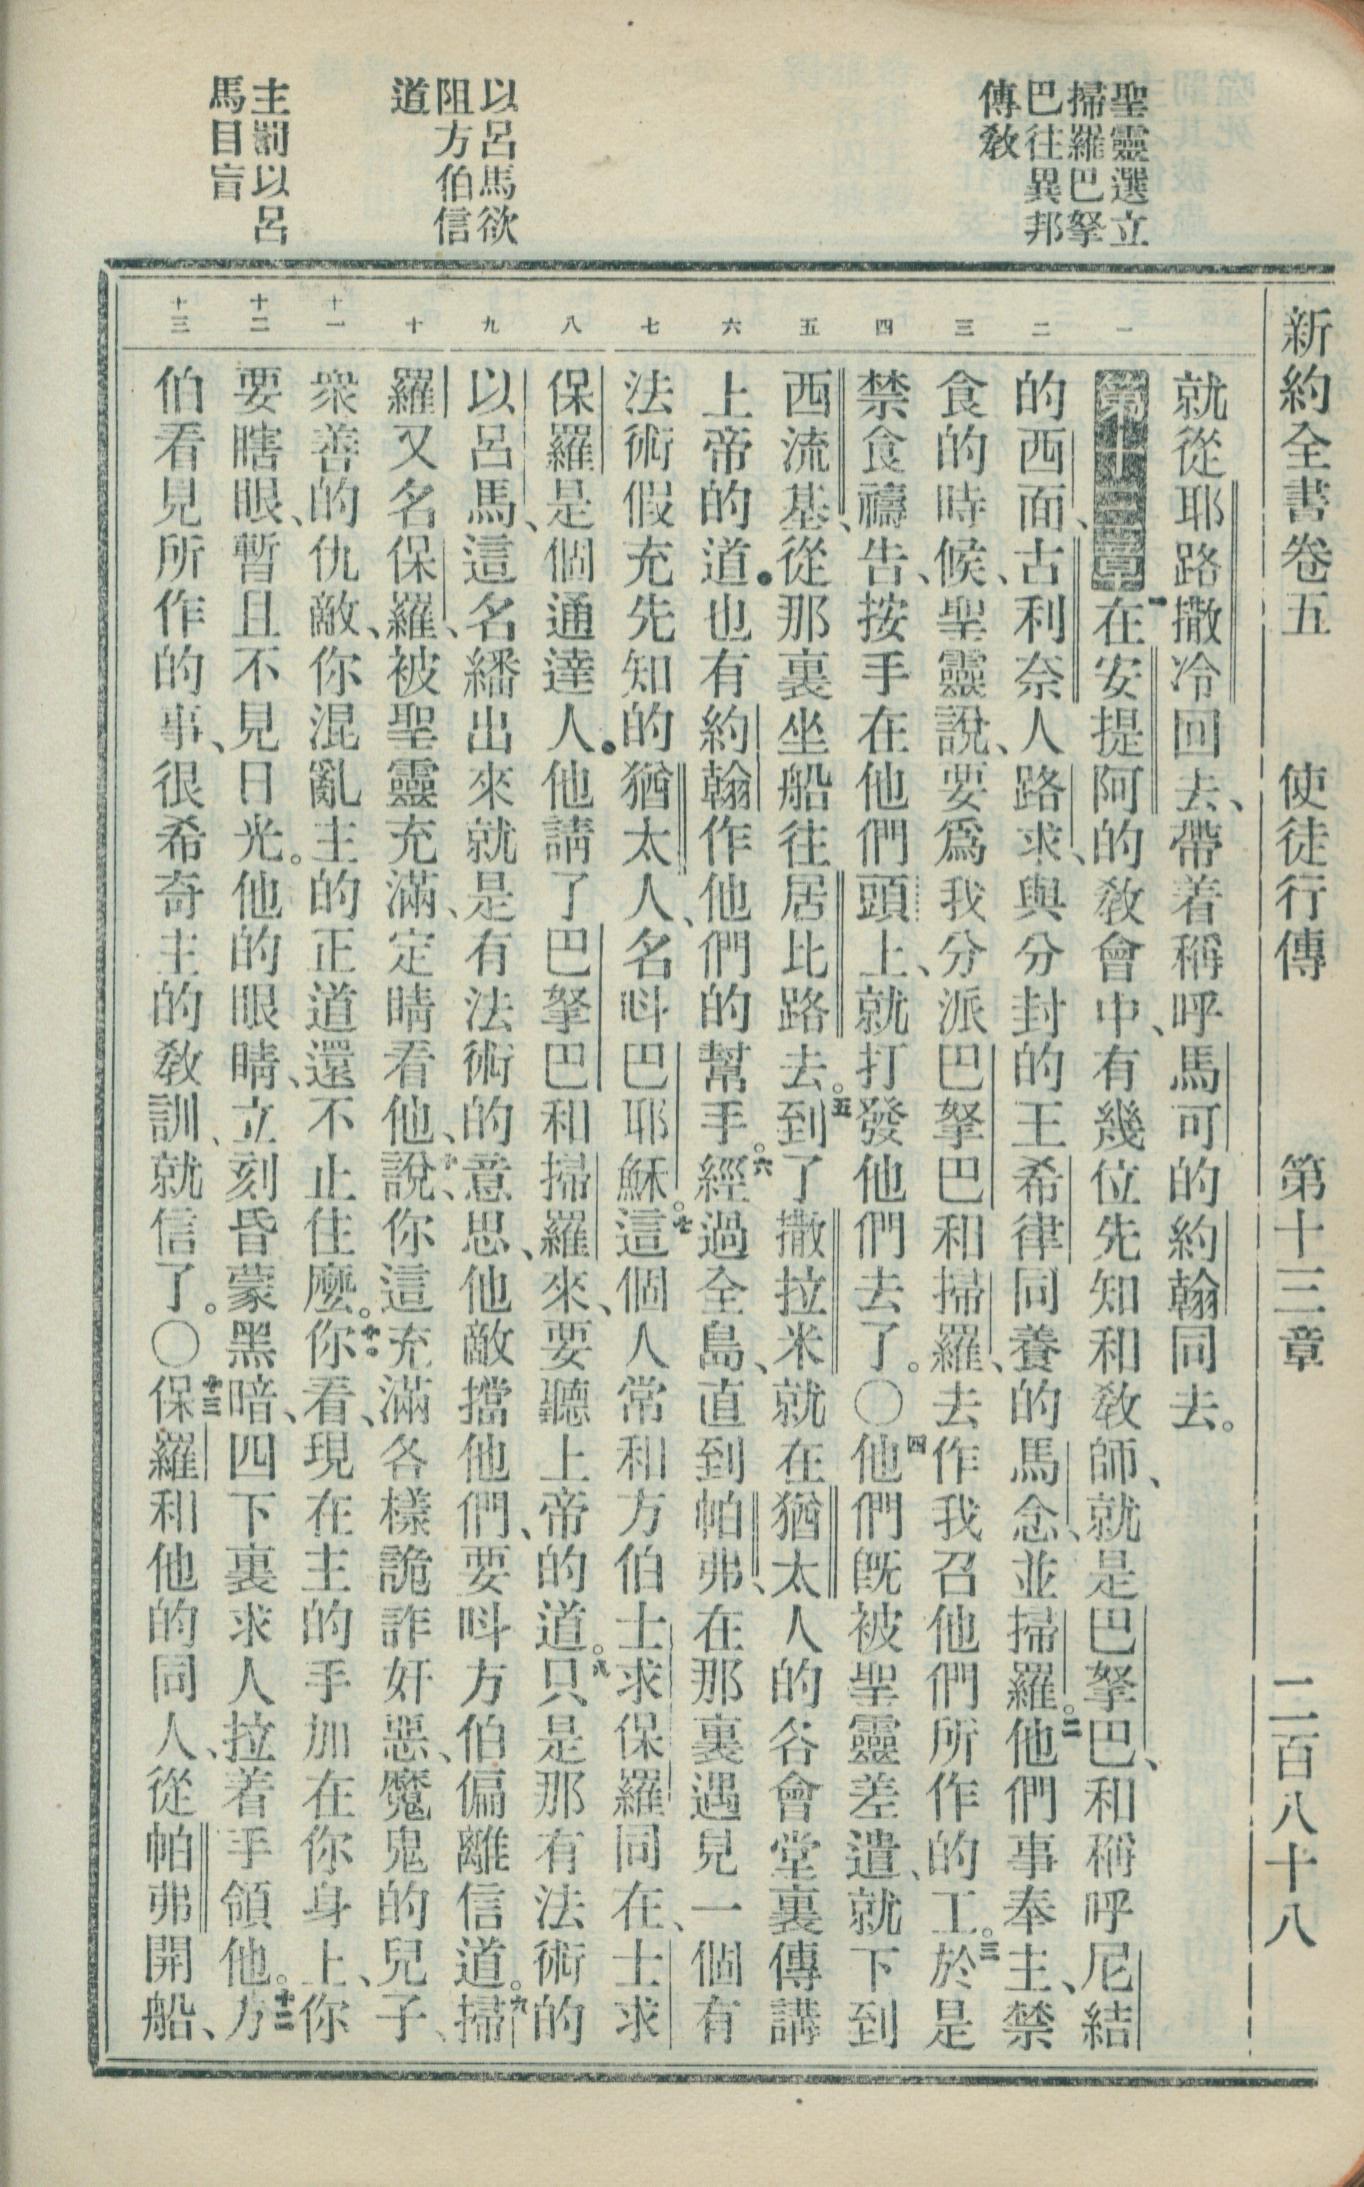 新約全書卷五　使徒行傳　第十三章　二百八十八
聖靈選立
掃羅巴拏
巴往異邦
傳教
以呂馬欲
阻方伯信
道
主罰以呂
馬目盲
一
二
三
四
五
六
七
八
九
十
十一
十二
十三
就從耶路撒冷回去、帶着稱呼馬可的約翰同去。
第十三章一在安提阿的教會中、有幾位先知和教師、就是巴拏巴、和稱呼尼結
的西面、古利奈人路求、與分封的王希律同養的馬念、並掃羅。二他們事奉主、禁
食的時候、聖靈說、要爲我分派巴拏巴和掃羅、去作我召他們所作的工。三於是
禁食禱告、按手在他們頭上、就打發他們去了。〇四他們旣被聖靈差遣、就下到
西流基、從那裏坐船往居比路去。五到了撒拉米就在猶太人的各會堂裏傳講
上帝的道。也有約翰作他們的幫手。六經過全島、直到帕弗、在那裏遇見一個有
法術假充先知的猶太人、名呌巴耶穌。七這個人常和方伯士求保羅同在、士求
保羅是個通達人。他請了巴拏巴和掃羅來、要聽上帝的道。八只是那有法術的
以呂馬、這名繙出來就是有法術的意思、他敵擋他們、要呌方伯偏離信道。九掃
羅又名保羅、被聖靈充滿、定睛看他、十說、你這充滿各樣詭詐奸惡、魔鬼的兒子、
衆善的仇敵、你混亂主的正道還不止住麼。十一你看、現在主的手加在你身上、你
要瞎眼、暫且不見日光。他的眼睛、立刻昏蒙黑暗、四下裏求人拉着手領他。十二方
伯看見所作的事、很希奇主的教訓、就信了。〇十三保羅和他的同人、從帕弗開船、